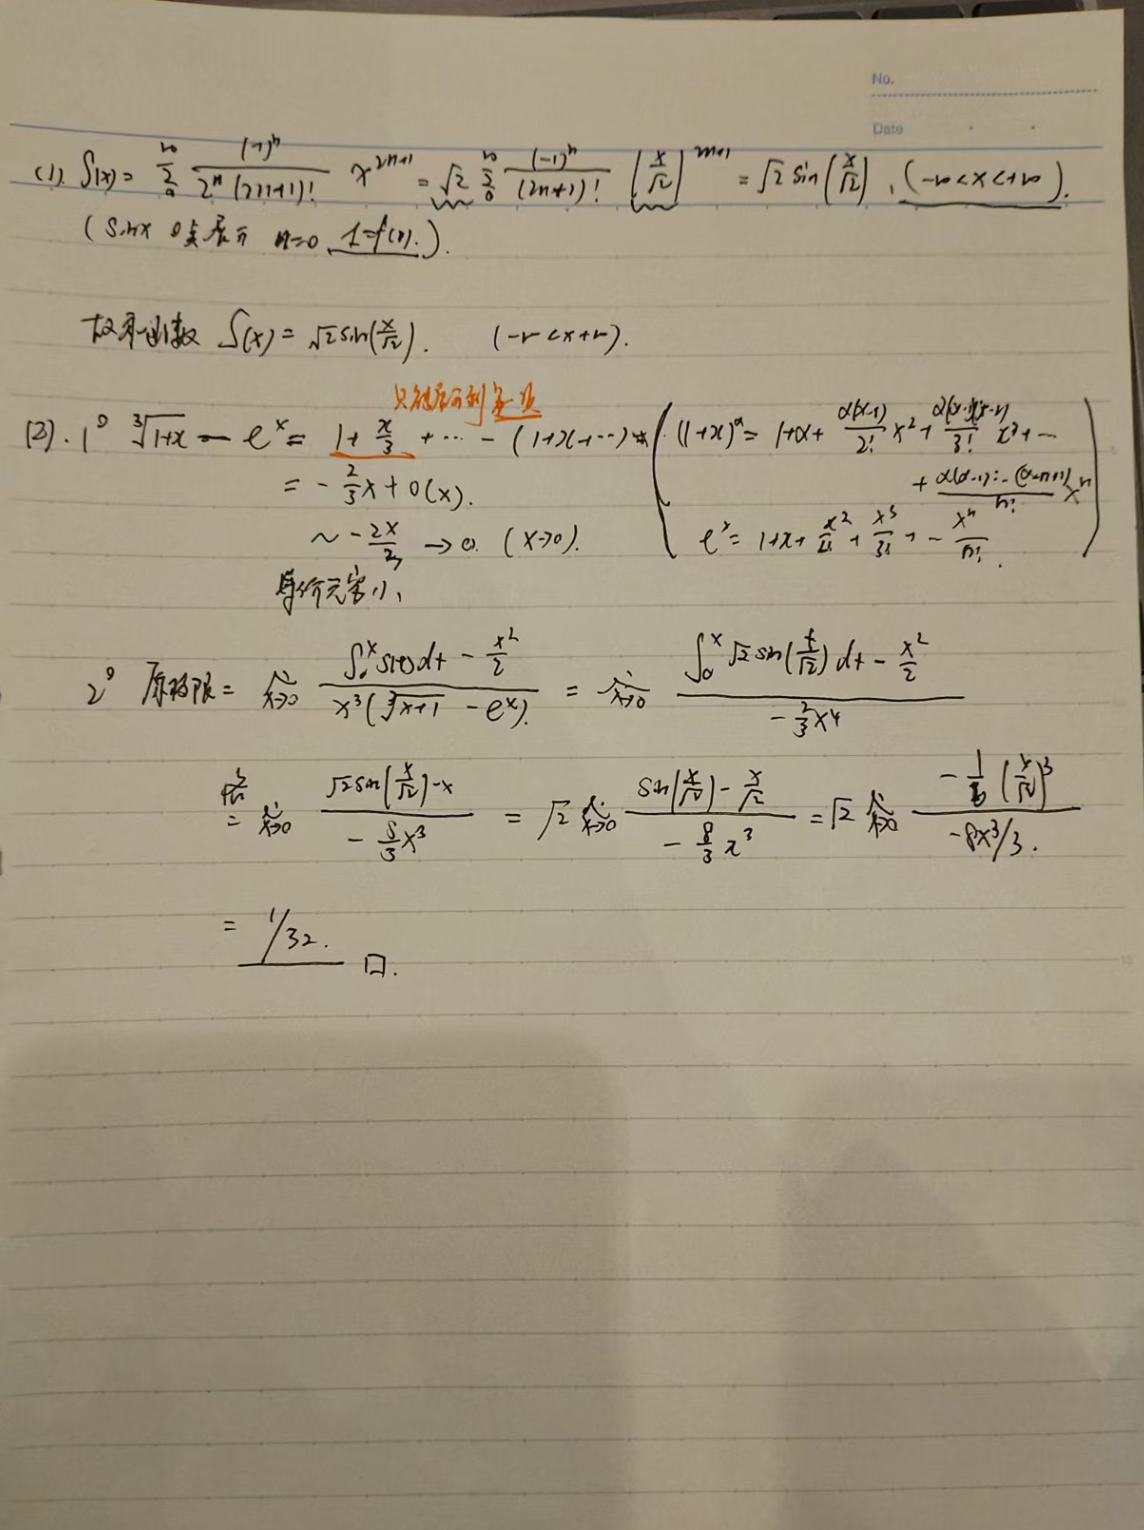 No.
Date
(1). S(x) = ∑_0^∞ (-1)^n / 2^n (2n+1)! x^{2n+1} = √2 ∑_0^∞ (-1)^n / (2n+1)! (x/√2)^{2n+1} = √2 sin(x/√2), (-∞<x<+∞).
(sinx 0点展开 n=0 1=f(0).).
故和函数 S(x) = √2 sin(x/√2). (-∞<x+∞).
只能展开到第一项
(2). 1° ∛(1+x) - e^x = 1 + x/3 + ⋯ - (1+x+⋯) ( (1+x)^α = 1+α+ α(α-1)/2! x^2 + α(α-1)(α-2)/3! x^3 + ⋯
= -2/3 x + o(x). + α(α-1)⋯(α-n+1)/n! x^n
~ -2x/3 → 0. (x→0). e^x = 1+x+ x^2/2! + x^3/3! + ⋯ x^n/n!. )
等价无穷小
2° 原极限 = lim_{x→0} (∫_0^x s(t)dt - x^2/2) / (x^3(∛(x+1) - e^x)) = lim_{x→0} (∫_0^x √2 sin(t/√2) dt - x^2/2) / (-2/3 x^4)
= lim_{x→0} (√2 sin(x/√2) - x) / (-8/3 x^3) = √2 lim_{x→0} (sin(x/√2) - x/√2) / (-8/3 x^3) = √2 lim_{x→0} (-1/6 (x/√2)^3) / (-8x^3/3).
= 1/32. □.